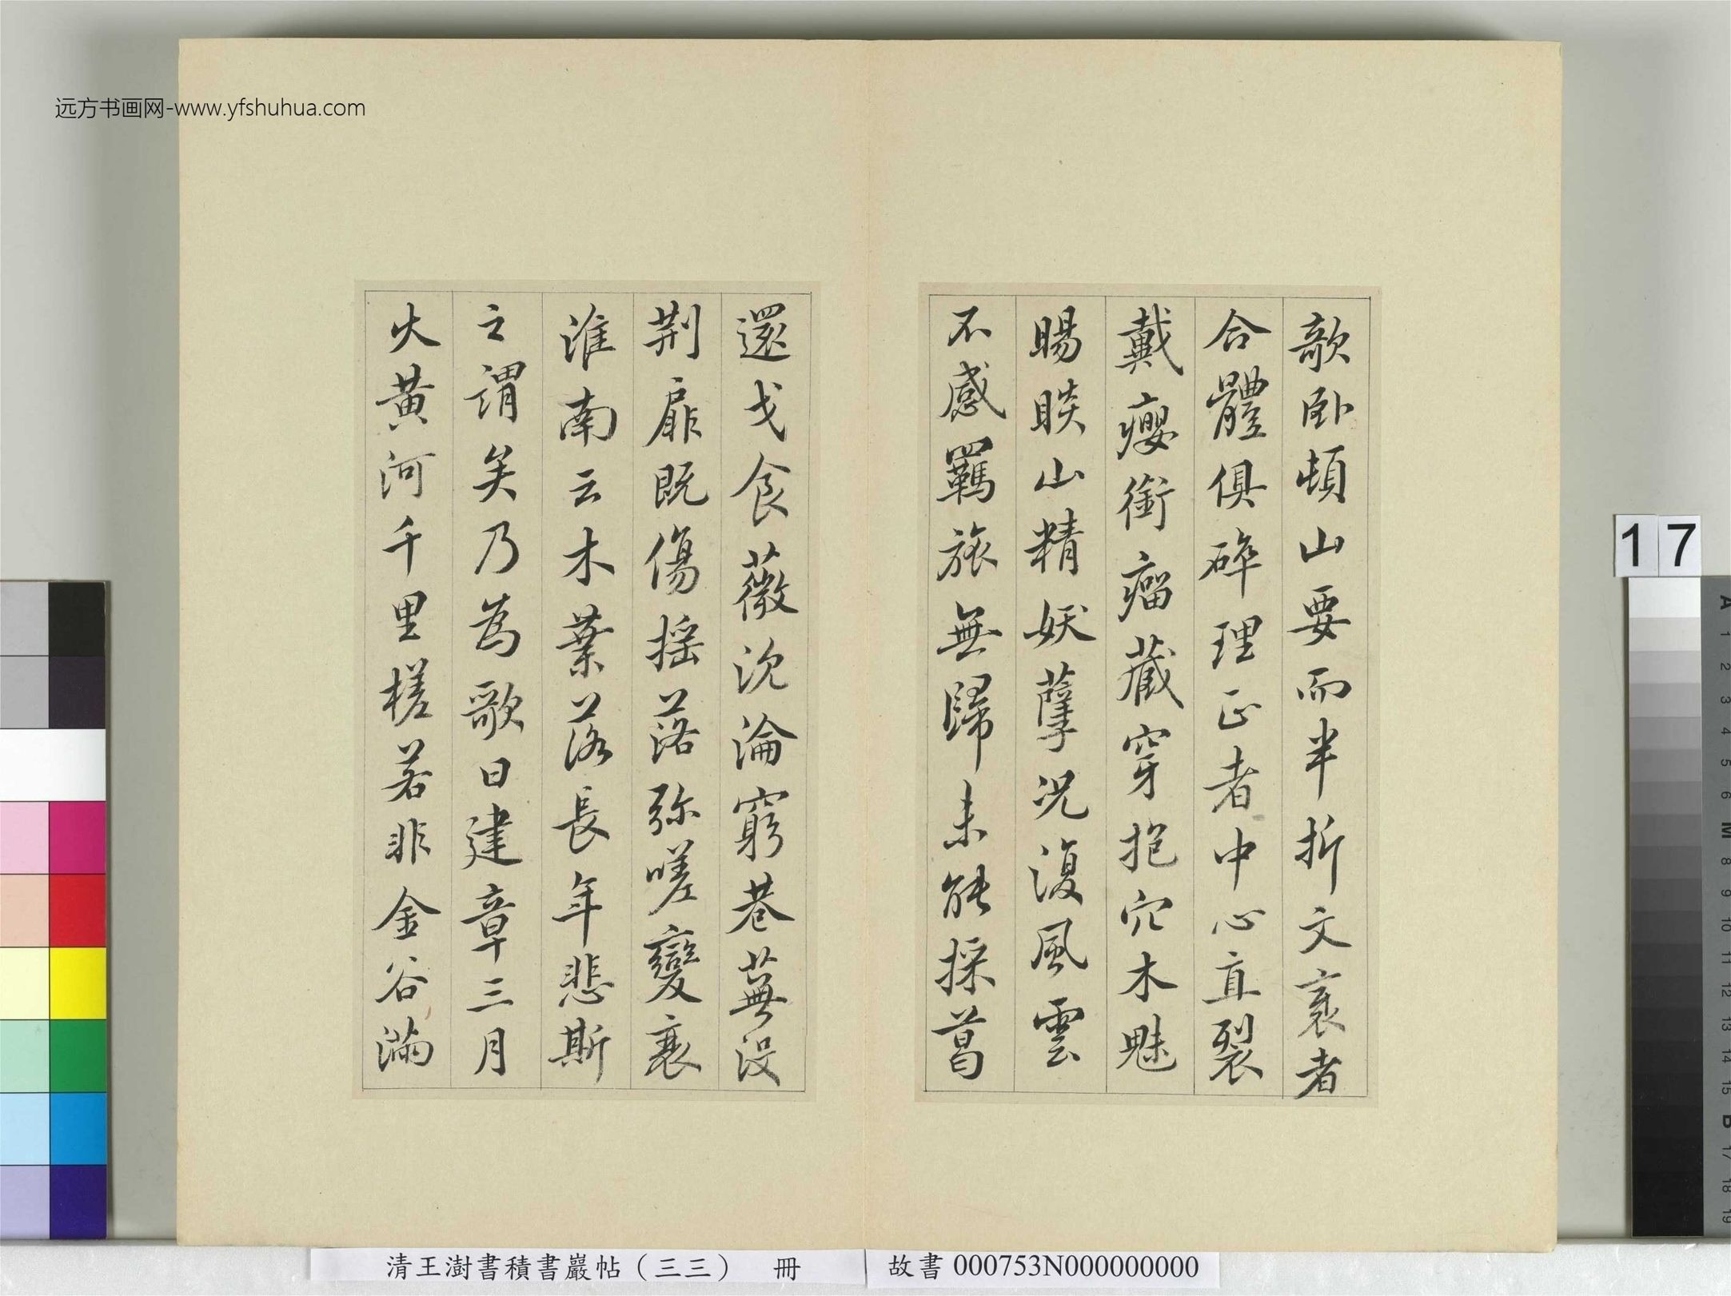 欹卧頓山要而半折文裹者
合體俱碎理正者中心直裂
戴癭銜瘤藏穿抱穴木魅
賜睒山精妖孽況復風雲
不感羈旅無歸未能採葛
還戈食薇沈淪窮巷蕪沒
荆扉既傷搖落弥嗟變衰
淮南云木葉落長年悲斯
之謂矣乃為歌曰建章三月
火黃河千里槎若非金谷滿
远方书画网-www.yfshuhua.com
17
清王澍書積書巖帖（三三） 冊
故書 000753N000000000